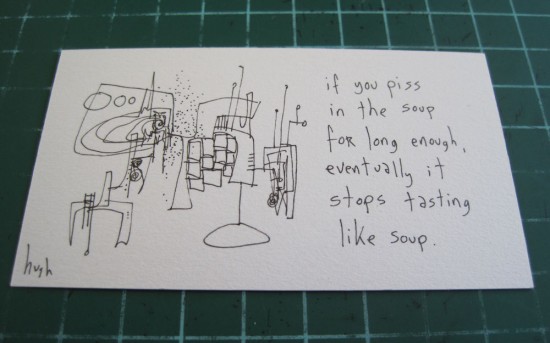 if you piss
in the soup
for long enough,
eventually it
stops tasting
like soup.
hugh